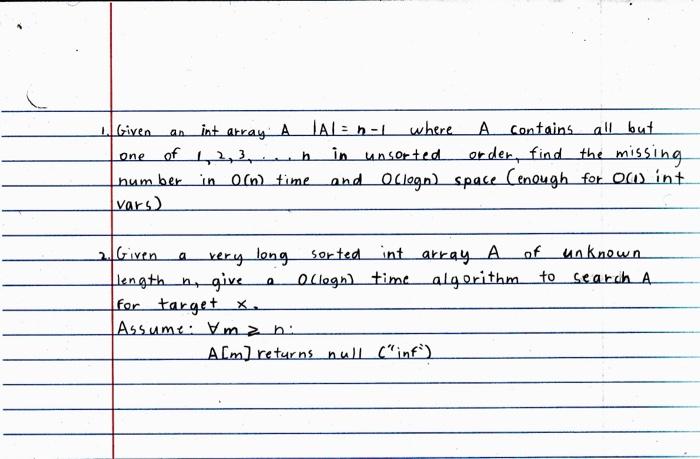 1. Given an int array A |A| = n-1 where A contains all but
one of 1, 2, 3, ... n in unsorted order, find the missing
number in O(n) time and O(logn) space (enough for O(1) int
vars)
2. Given a very long sorted int array A of unknown
length n, give a O(logn) time algorithm to search A
for target x.
Assume: ∀m ≥ n:
A[m] returns null ("inf")